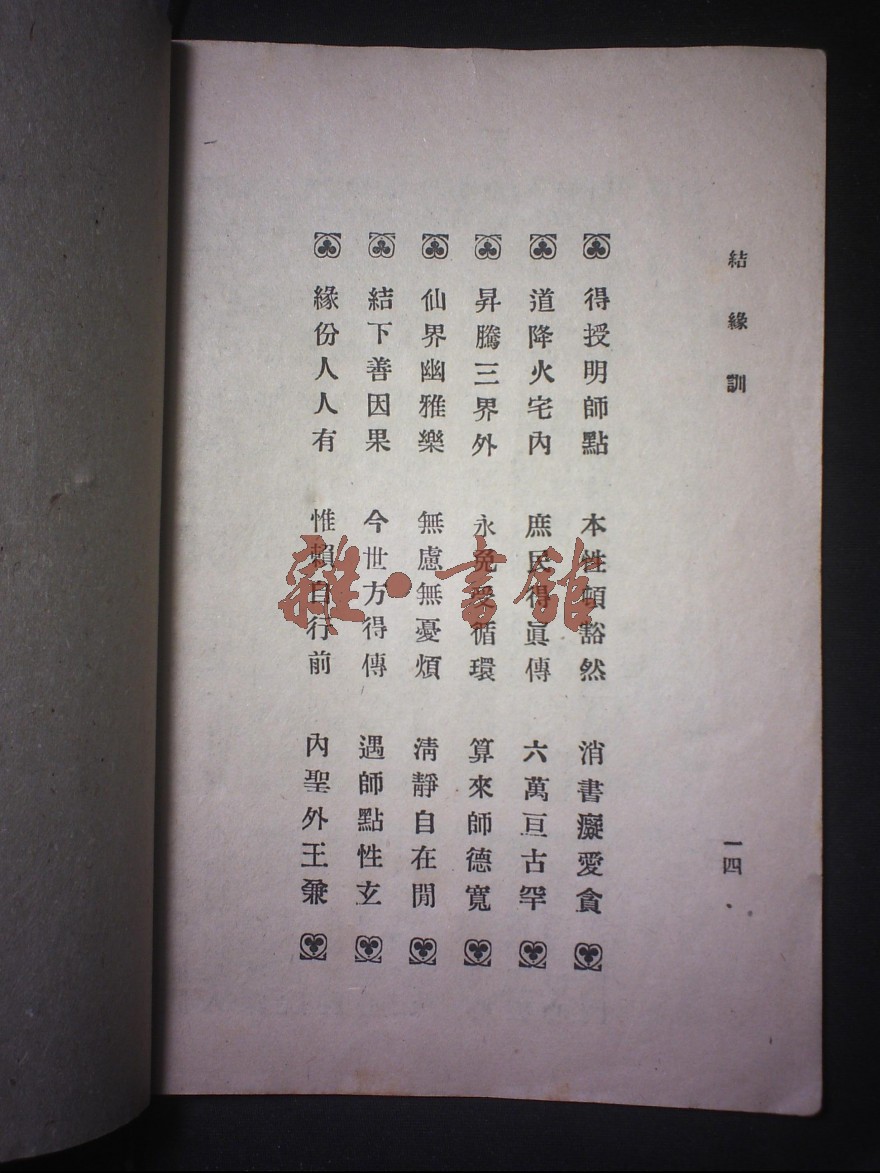 結緣訓
得授明師點 本性頓豁然 消書癡愛貪
道降火宅內 庶民得眞傳 六萬亘古罕
昇騰三界外 永免受循環 算來師德寬
仙界幽雅樂 無慮無憂煩 淸靜自在閒
結下善因果 今世方得傳 遇師點性玄
緣份人人有 惟賴自行前 內聖外王兼
一四
雜·書館